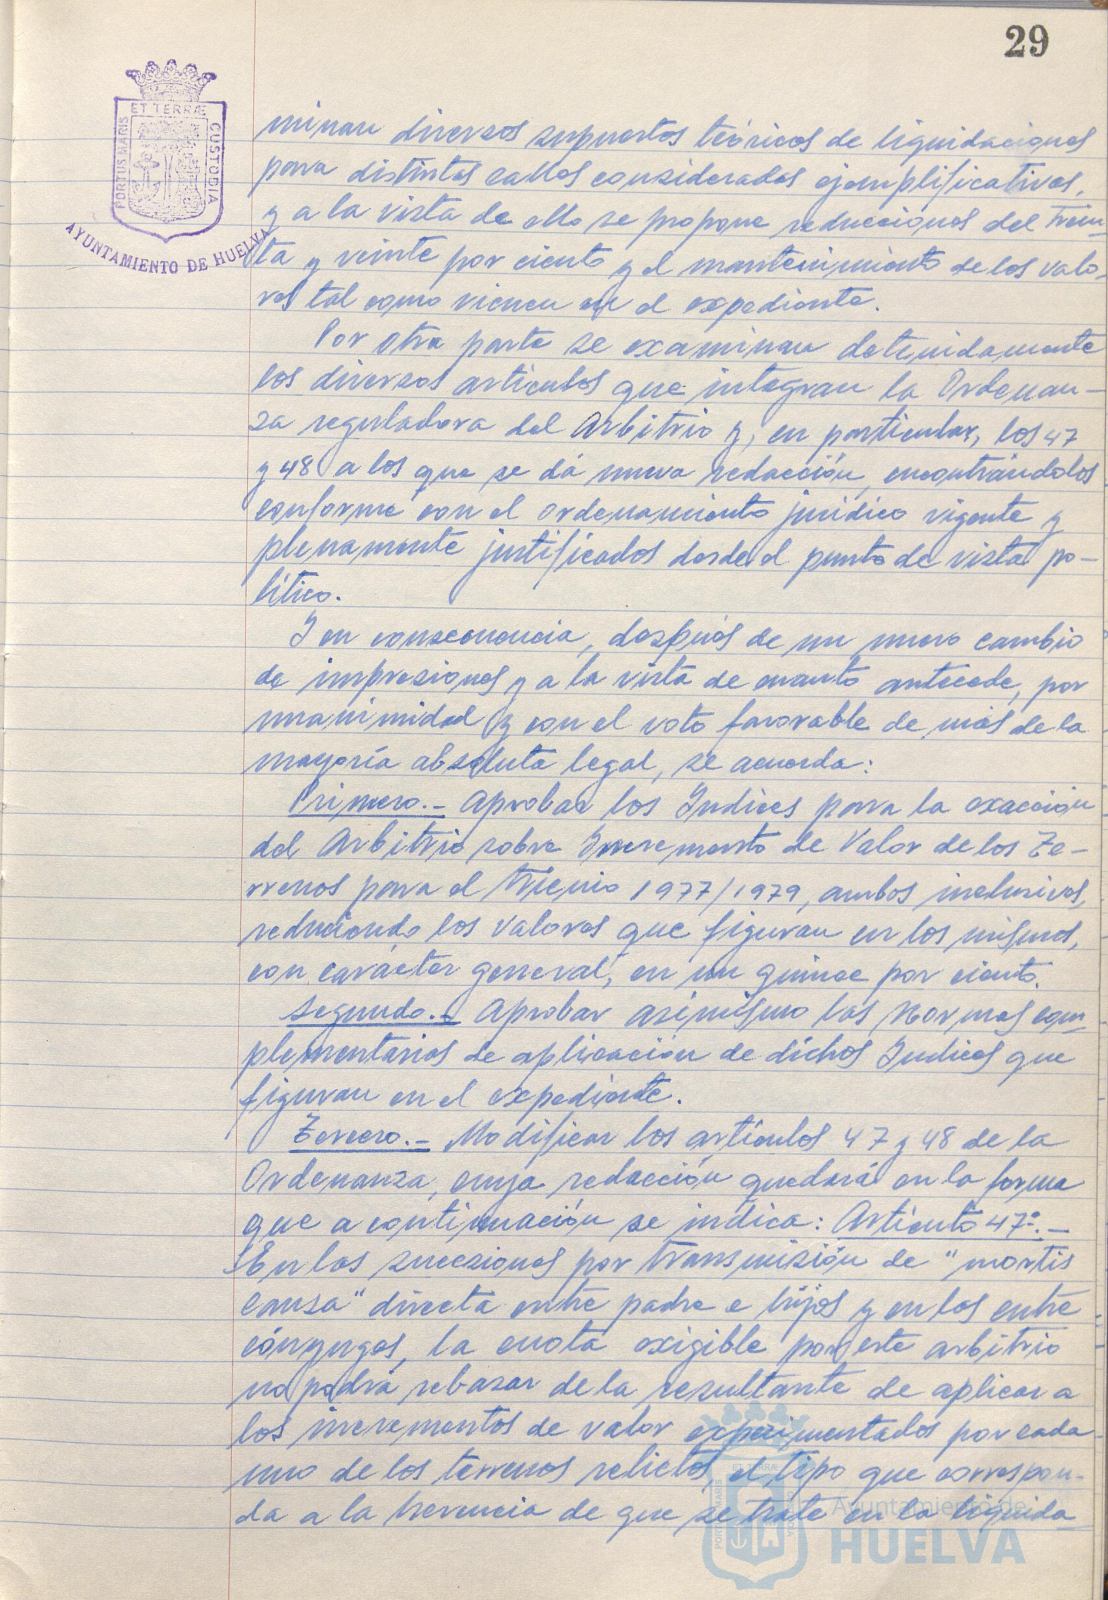 29
PORTUS MARIS ET TERRÆ CUSTODIA
AYUNTAMIENTO DE HUELVA
minan diversos supuestos teóricos de liquidaciones
para distintas calles consideradas ejemplificativas,
y a la vista de ello se propone reducciones del trein-
ta y veinte por ciento y el mantenimiento de los valo-
res tal como vienen en el expediente.
Por otra parte se examinan detenidamente
los diversos artículos que integran la Ordenan-
za reguladora del Arbitrio y, en particular, los 47
y 48 a los que se dá nueva redacción, encontrándolos
conforme con el ordenamiento jurídico vigente y
plenamente justificados desde el punto de vista po-
lítico.
Y en consecuencia, después de un nuevo cambio
de impresiones y a la vista de cuanto antecede, por
unanimidad y con el voto favorable de más de la
mayoría absoluta legal, se acuerda:
Primero.- Aprobar los Indices para la exacción
del Arbitrio sobre Incremento de Valor de los Te-
rrenos para el trienio 1977/1979, ambos inclusives,
reduciendo los valores que figuran en los mismos,
con carácter general, en un quince por ciento.
Segundo.- Aprobar asimismo las Normas com-
plementarias de aplicación de dichos Indices que
figuran en el expediente.
Tercero.- Modificar los artículos 47 y 48 de la
Ordenanza, cuya redacción quedará en la forma
que a continuación se indica: Artículo 47º.-
"En las sucesiones por transmisión de "mortis
causa" directa entre padre e hijos y en las entre
cónyuges, la cuota exigible por este arbitrio
no podrá rebasar de la resultante de aplicar a
los incrementos de valor experimentados por cada
uno de los terrenos relictos, el tipo que correspon-
da a la herencia de que se trate en la liquida
Ayuntamiento de
HUELVA